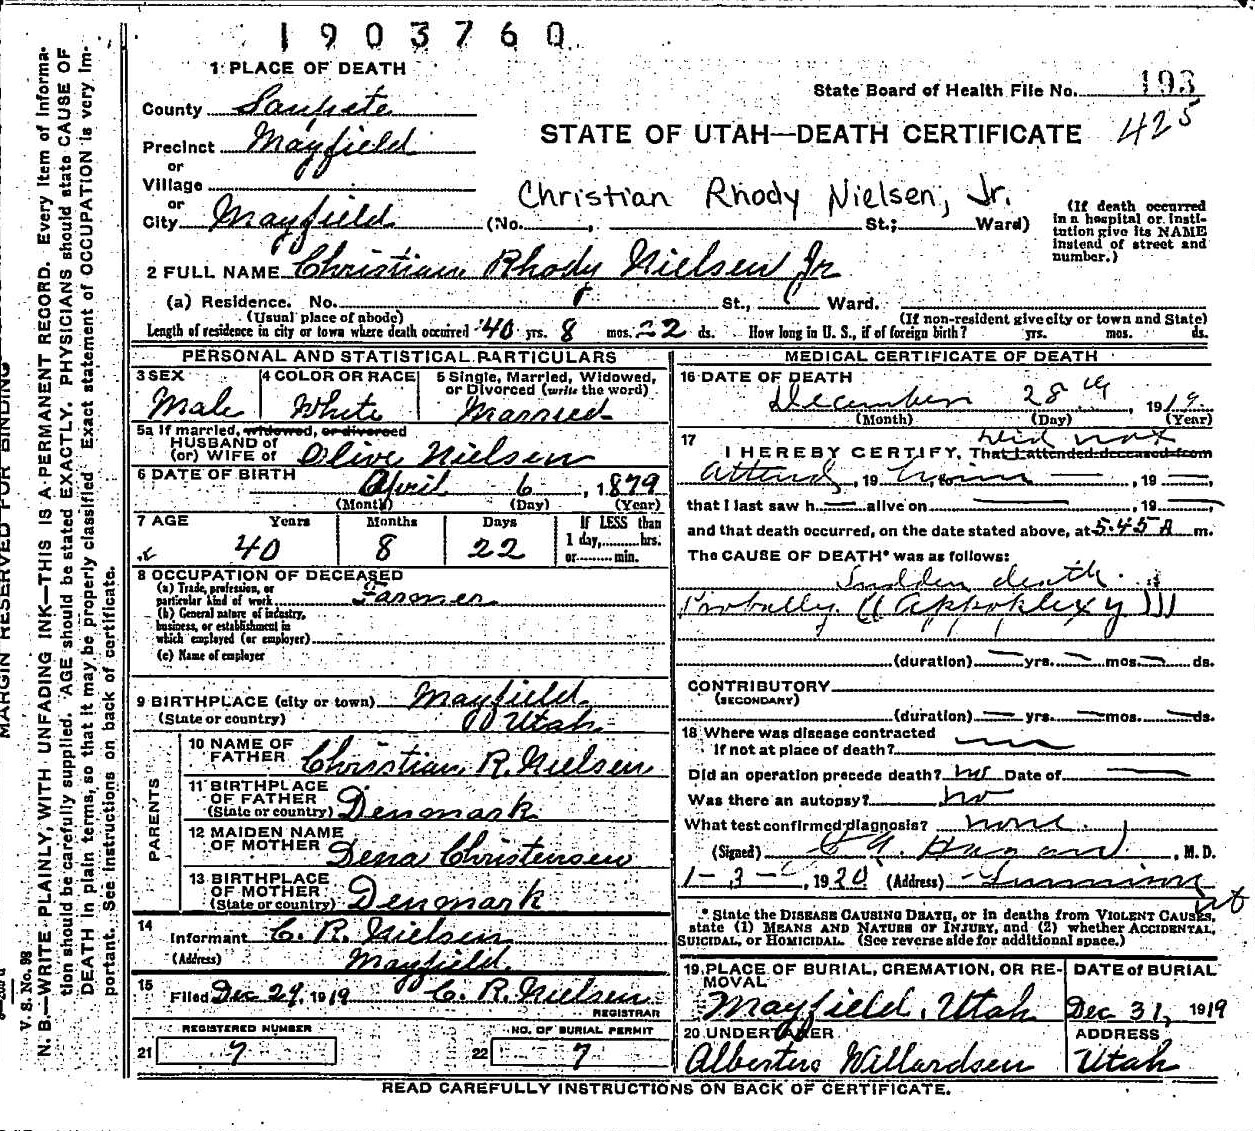 1903760
1 PLACE OF DEATH
State Board of Health File No. 193
425
County Sanpete
STATE OF UTAH—DEATH CERTIFICATE
Precinct Mayfield
or
Village
Christian Rhody Nielsen, Jr.
or
City Mayfield (No. , St.; Ward)
(If death occurred in a hospital or institution give its NAME instead of street and number.)
2 FULL NAME Christian Rhody Nielsen Jr
(a) Residence. No. St., Ward.
(Usual place of abode) (If non-resident give city or town and State)
Length of residence in city or town where death occurred 40 yrs. 8 mos. 22 ds. How long in U. S., if of foreign birth? yrs. mos. ds.
PERSONAL AND STATISTICAL PARTICULARS
3 SEX Male
4 COLOR OR RACE White
5 Single, Married, Widowed, or Divorced (write the word) Married
5a If married, widowed, or divorced
HUSBAND of
(or) WIFE of Olive Nielsen
6 DATE OF BIRTH April 6, 1879
(Month) (Day) (Year)
7 AGE Years Months Days If LESS than
40 8 22 1 day, hrs.
or min.
8 OCCUPATION OF DECEASED
(a) Trade, profession, or
particular kind of work Farmer
(b) General nature of industry,
business, or establishment in
which employed (or employer)
(c) Name of employer
9 BIRTHPLACE (city or town) Mayfield
(State or country) Utah
PARENTS
10 NAME OF
FATHER Christian R. Nielsen
11 BIRTHPLACE
OF FATHER
(State or country) Denmark
12 MAIDEN NAME
OF MOTHER Dena Christensen
13 BIRTHPLACE
OF MOTHER
(State or country) Denmark
14
Informant C. R. Nielsen
(Address) Mayfield.
15
Filed Dec 29, 1919 C. R. Nielsen
REGISTRAR
REGISTERED NUMBER NO. OF BURIAL PERMIT
21 7 22 7
MEDICAL CERTIFICATE OF DEATH
16 DATE OF DEATH
December 28th, 1919.
(Month) (Day) (Year)
17 did not
I HEREBY CERTIFY, That I attended deceased from
attend, 19 him, to , 19
that I last saw h alive on , 19
and that death occurred, on the date stated above, at 5:45 A m.
The CAUSE OF DEATH* was as follows:
Sudden death.
Probally ((Appoplexy)))
(duration) yrs. mos. ds.
CONTRIBUTORY
(SECONDARY)
(duration) yrs. mos. ds.
18 Where was disease contracted
If not at place of death?
Did an operation precede death? no Date of
Was there an autopsy? no
What test confirmed diagnosis? none.
(Signed) , M. D.
1-3-, 1920 (Address) Gunnison
Ut
* State the DISEASE CAUSING DEATH, or in deaths from VIOLENT CAUSES,
state (1) MEANS AND NATURE OF INJURY, and (2) whether ACCIDENTAL,
SUICIDAL, or HOMICIDAL. (See reverse side for additional space.)
19. PLACE OF BURIAL, CREMATION, OR RE-
MOVAL DATE of BURIAL
Mayfield, Utah Dec 31, 1919
20 UNDERTAKER ADDRESS
Albertus Willardsen Utah
READ CAREFULLY INSTRUCTIONS ON BACK OF CERTIFICATE.
MARGIN RESERVED FOR BINDING
V. S. No. 98
N. B.—WRITE PLAINLY, WITH UNFADING INK—THIS IS A PERMANENT RECORD. Every item of informa-
tion should be carefully supplied. AGE should be stated EXACTLY. PHYSICIANS should state CAUSE OF
DEATH in plain terms, so that it may be properly classified Exact statement of OCCUPATION is very im-
portant. See instructions on back of certificate.